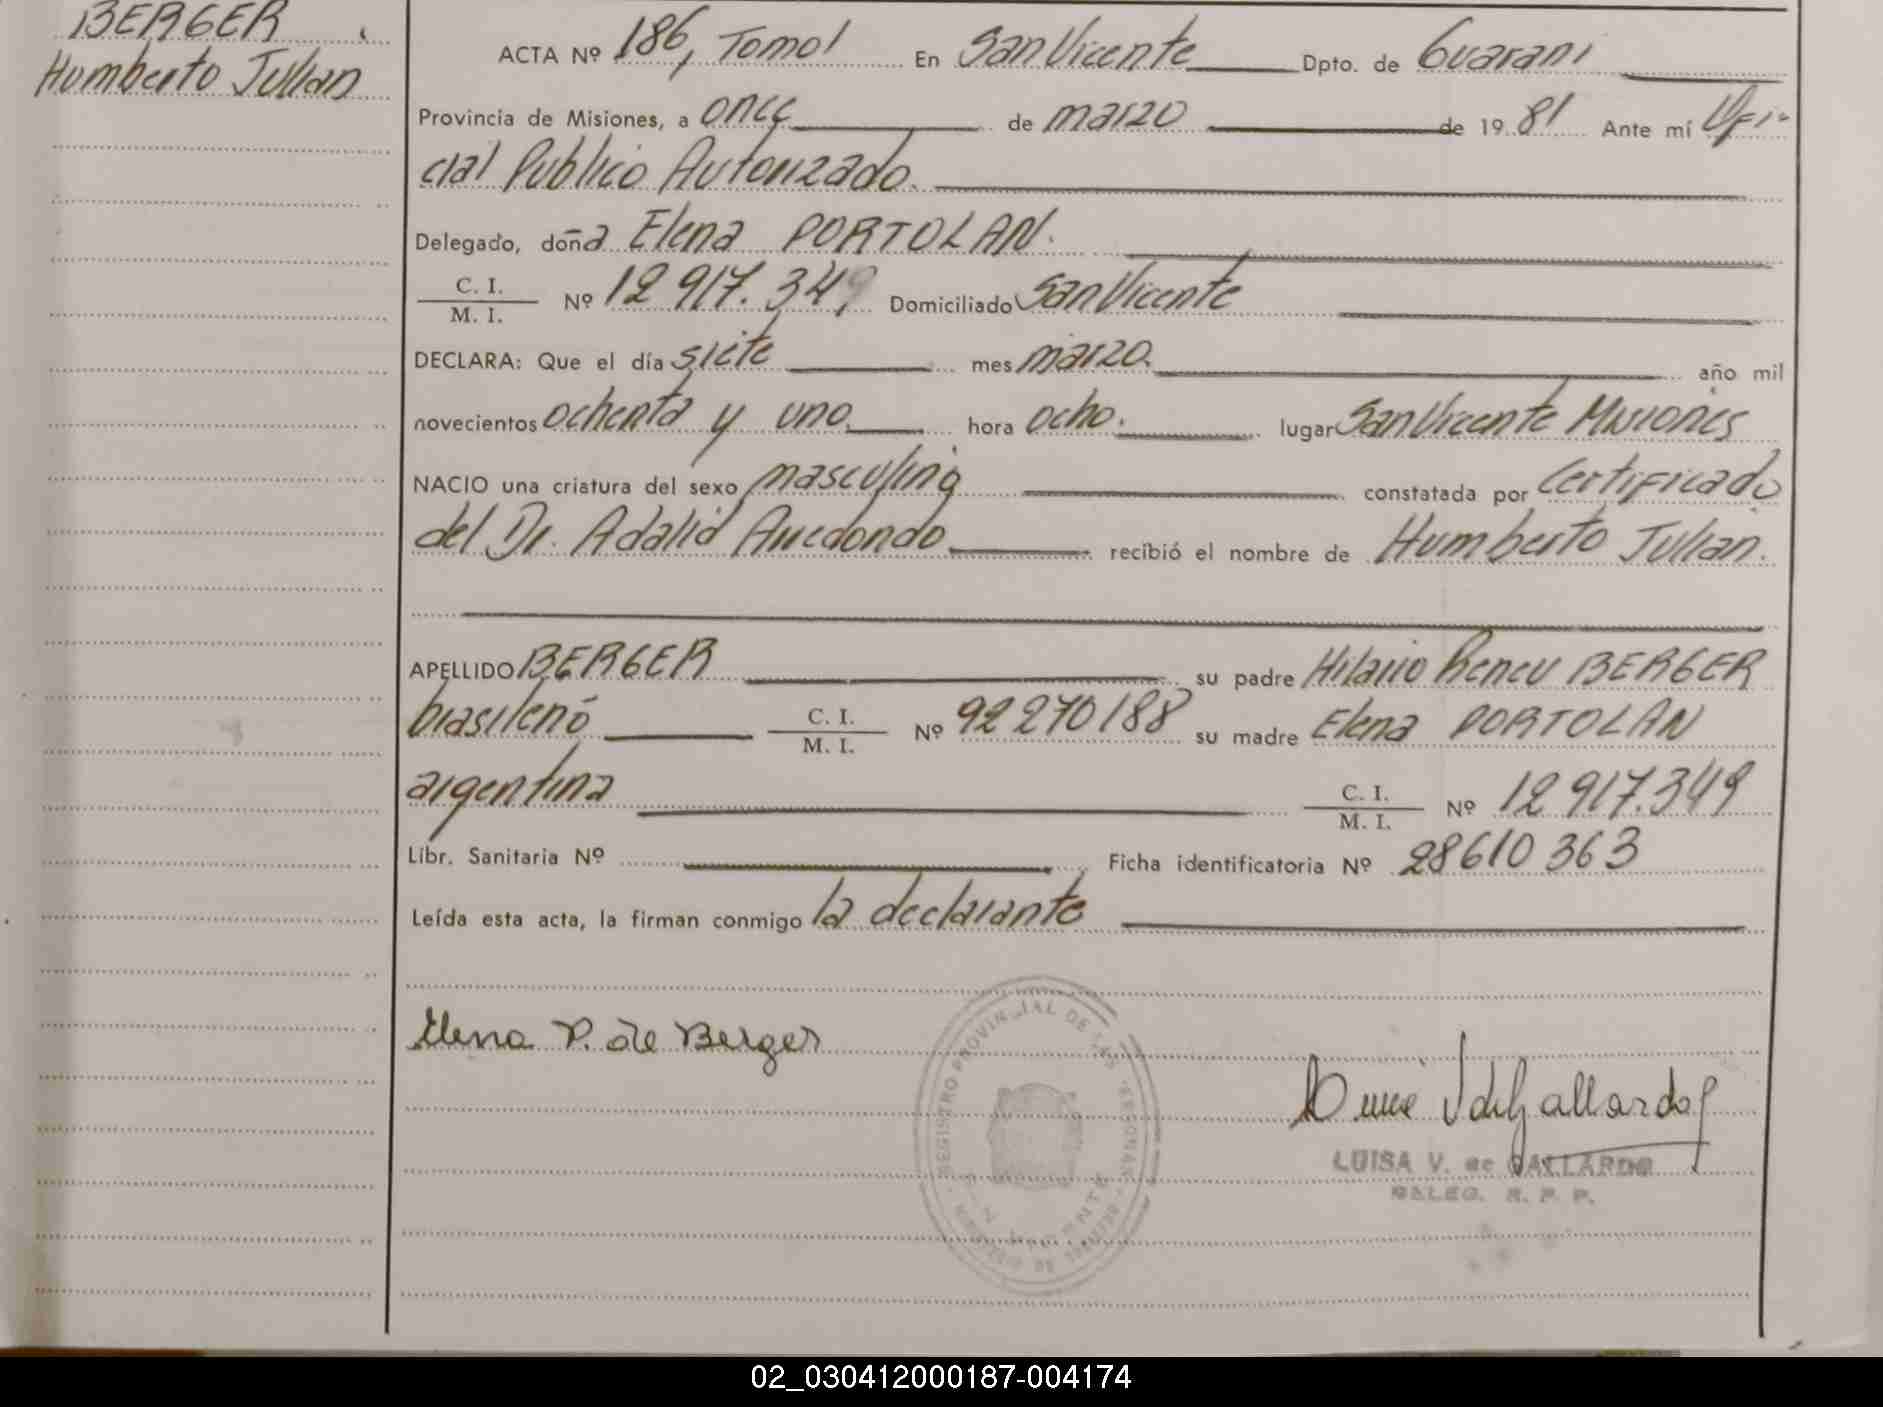 BERGER
Humberto Julian
ACTA Nº 186, Tomo I En San Vicente Dpto. de Guarani
Provincia de Misiones, a once de marzo de 1981 Ante mí Ofi-
cial Publico Autorizado.
Delegado, doña Elena PORTOLAN.
C. I.
M. I. Nº 12 917.349 Domiciliado San Vicente
DECLARA: Que el día siete mes marzo. año mil
novecientos ochenta y uno. hora ocho. lugar San Vicente Misiones
NACIO una criatura del sexo masculino constatada por Certificado
del Dr. Adalid Arredondo recibió el nombre de Humberto Julian.
APELLIDO BERGER su padre Hilario Reneu BERGER
brasileño C. I. M. I. Nº 92 270188 su madre Elena PORTOLAN
argentina C. I. M. I. Nº 12 917.349
Libr. Sanitaria Nº Ficha identificatoria Nº 28610 363
Leída esta acta, la firman conmigo la declarante
Elena P. de Berger
REGISTRO PROVINCIAL DE LAS PERSONAS
LUISA V. de GALLARDO
DELEG. R. P. P.
02_030412000187-004174